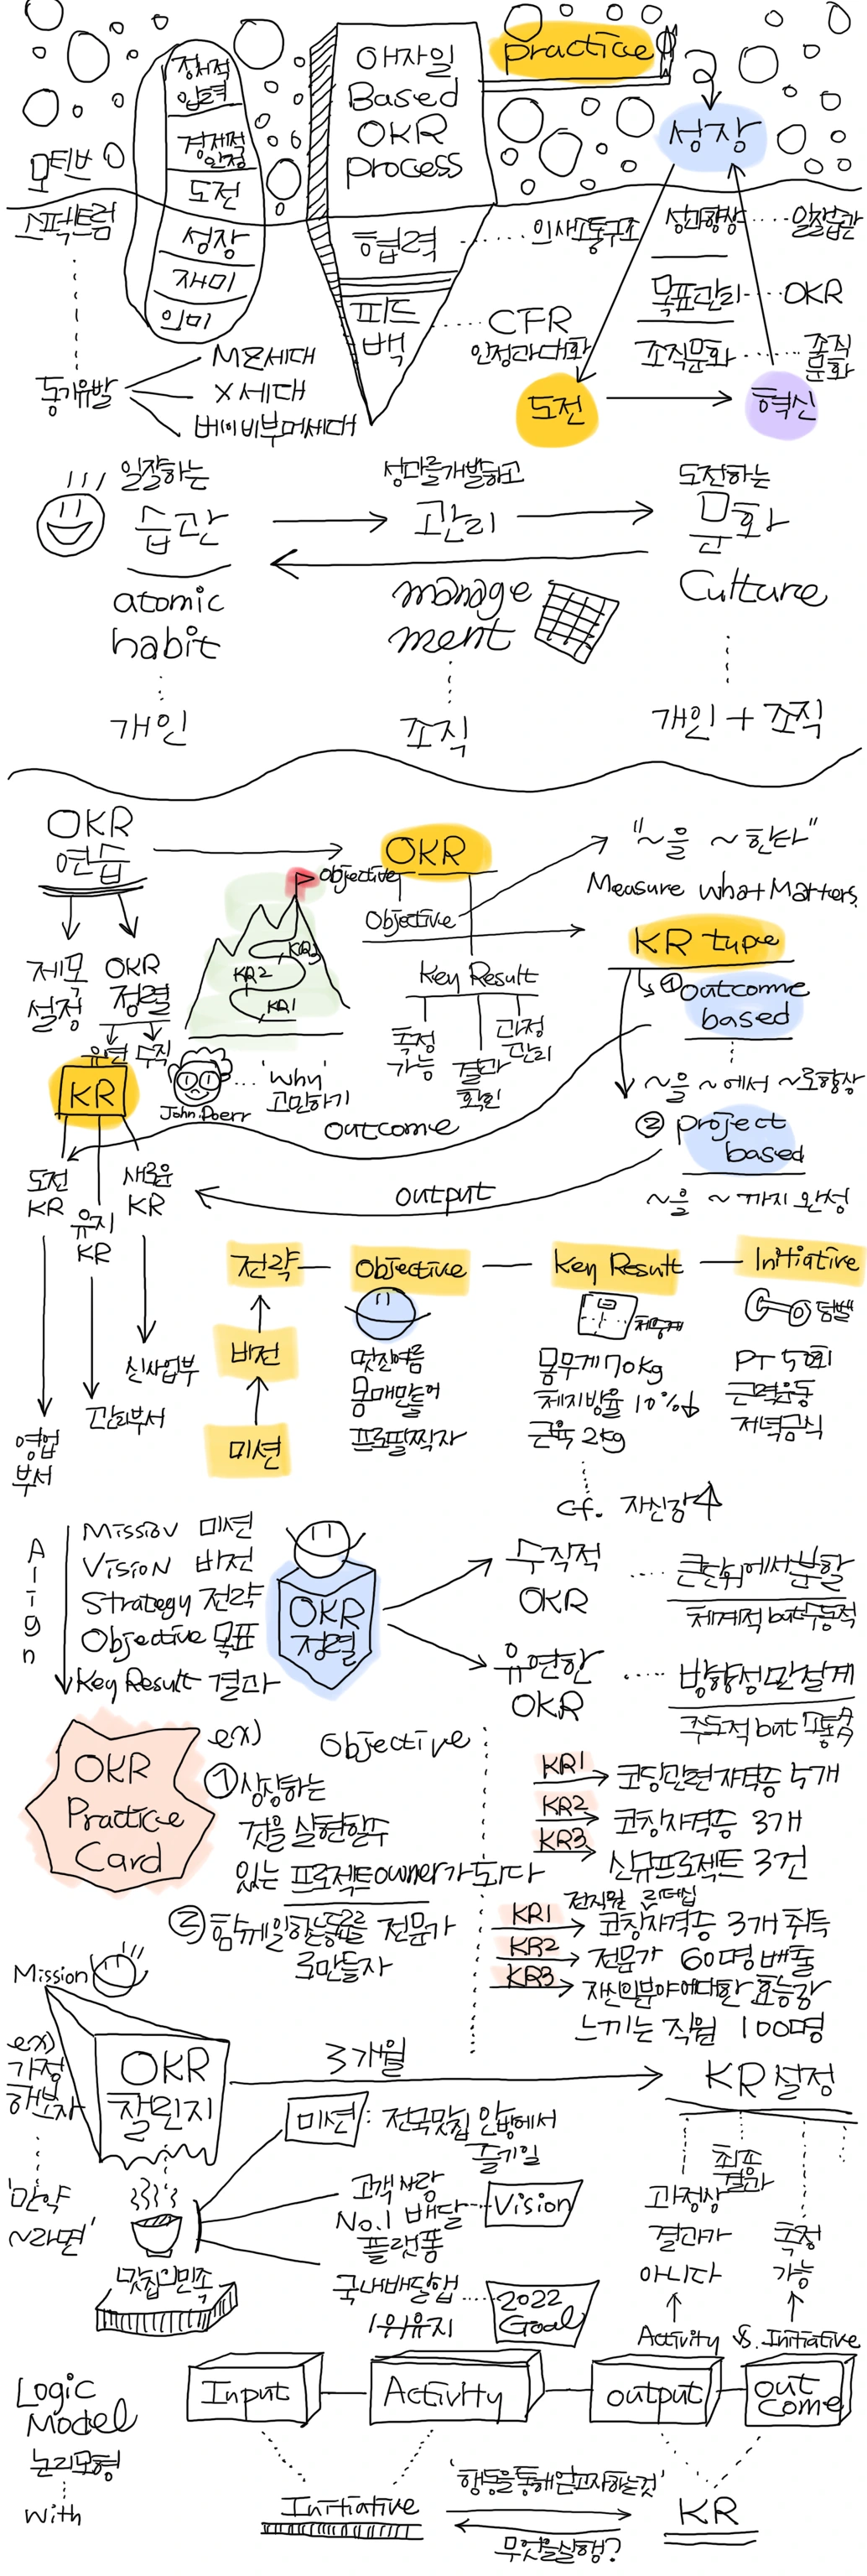 practice
애자일
Based
OKR
process
경제적
안정
도전
성장
재미
의미
모티브
스펙트럼
동기유발
MZ세대
X세대
베이비부머세대
협력
의사소통구조
피드
백
CFR
인정과대화
성장
성과향상
일잘습관
목표관리
OKR
조직문화
조직
문화
도전
혁신
일잘하는
습관
atomic
habit
개인
성과를개발하고
관리
manage
ment
조직
도전하는
문화
Culture
개인 + 조직
OKR
연습
제목
설정
OKR
정렬
유연
수직
OKR
Objective
Objective
KR3
KR2
KR1
Key Result
측정
가능
결과
확인
과정
관리
"~을 ~한다"
Measure what Matters.
KR type
① outcome
based
~을 ~에서 ~로향상
② project
based
~을 ~까지 완성
John.Doerr
'why'
고민하기
outcome
output
KR
도전
KR
유지
KR
새로운
KR
영업
부서
관리부서
신사업부
전략
비전
미션
Objective
멋진여름
몸매만들어
프로필찍자
Key Result
체중계
몸무게 70kg
체지방율 10%↓
근육 2kg
cf. 자신감↑
Initiative
덤벨
PT 50회
근력운동
저녁금식
Align
Mission 미션
Vision 비전
Strategy 전략
Objective 목표
Key Result 결과
OKR
정렬
수직적
OKR
큰단위에서분할
체계적but수동적
유연한
OKR
방향성만설계
주도적but
OKR
Practice
Card
ex)
Objective
① 상상하는
것을 실현할수
있는 프로젝트owner가되다
KR1
코딩관련자격증 5개
KR2
코칭자격증 3개
KR3
신규프로젝트 3건
② 함께일할동료를 전문가
로만들자
KR1
전직원 리더십
코칭자격증 3개 취득
KR2
전문가 60명배출
KR3
자신의분야에대한 효능감
느끼는 직원 100명
Mission
ex)
가정
해보자
'만약
~라면'
OKR
챌린지
3개월
KR설정
미션: 전국맛집 안방에서
즐기일
고객사랑
No.1 배달
플랫폼
Vision
국내배달앱
1위유지
2022
Goal
맛집의민족
과정상
결과가
아니다
최종
결과
측정
가능
Activity VS. Initiative
Logic
Model
논리모형
with
Input
Activity
output
out
come
Initiative
'행동을통해얻고자하는것'
무엇을실행?
KR